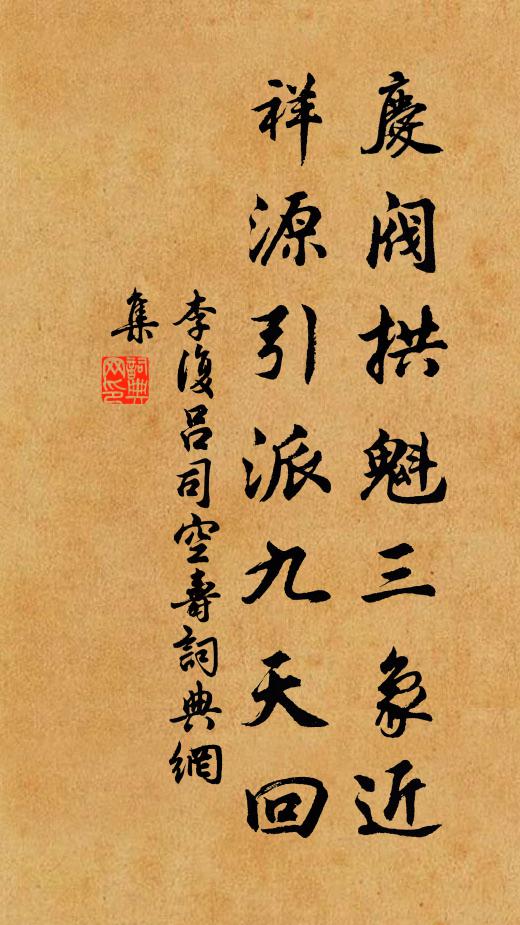 慶閥拱魁三象近
祥源引派九天回
李復呂司空壽詞典網
集
詞典
网印